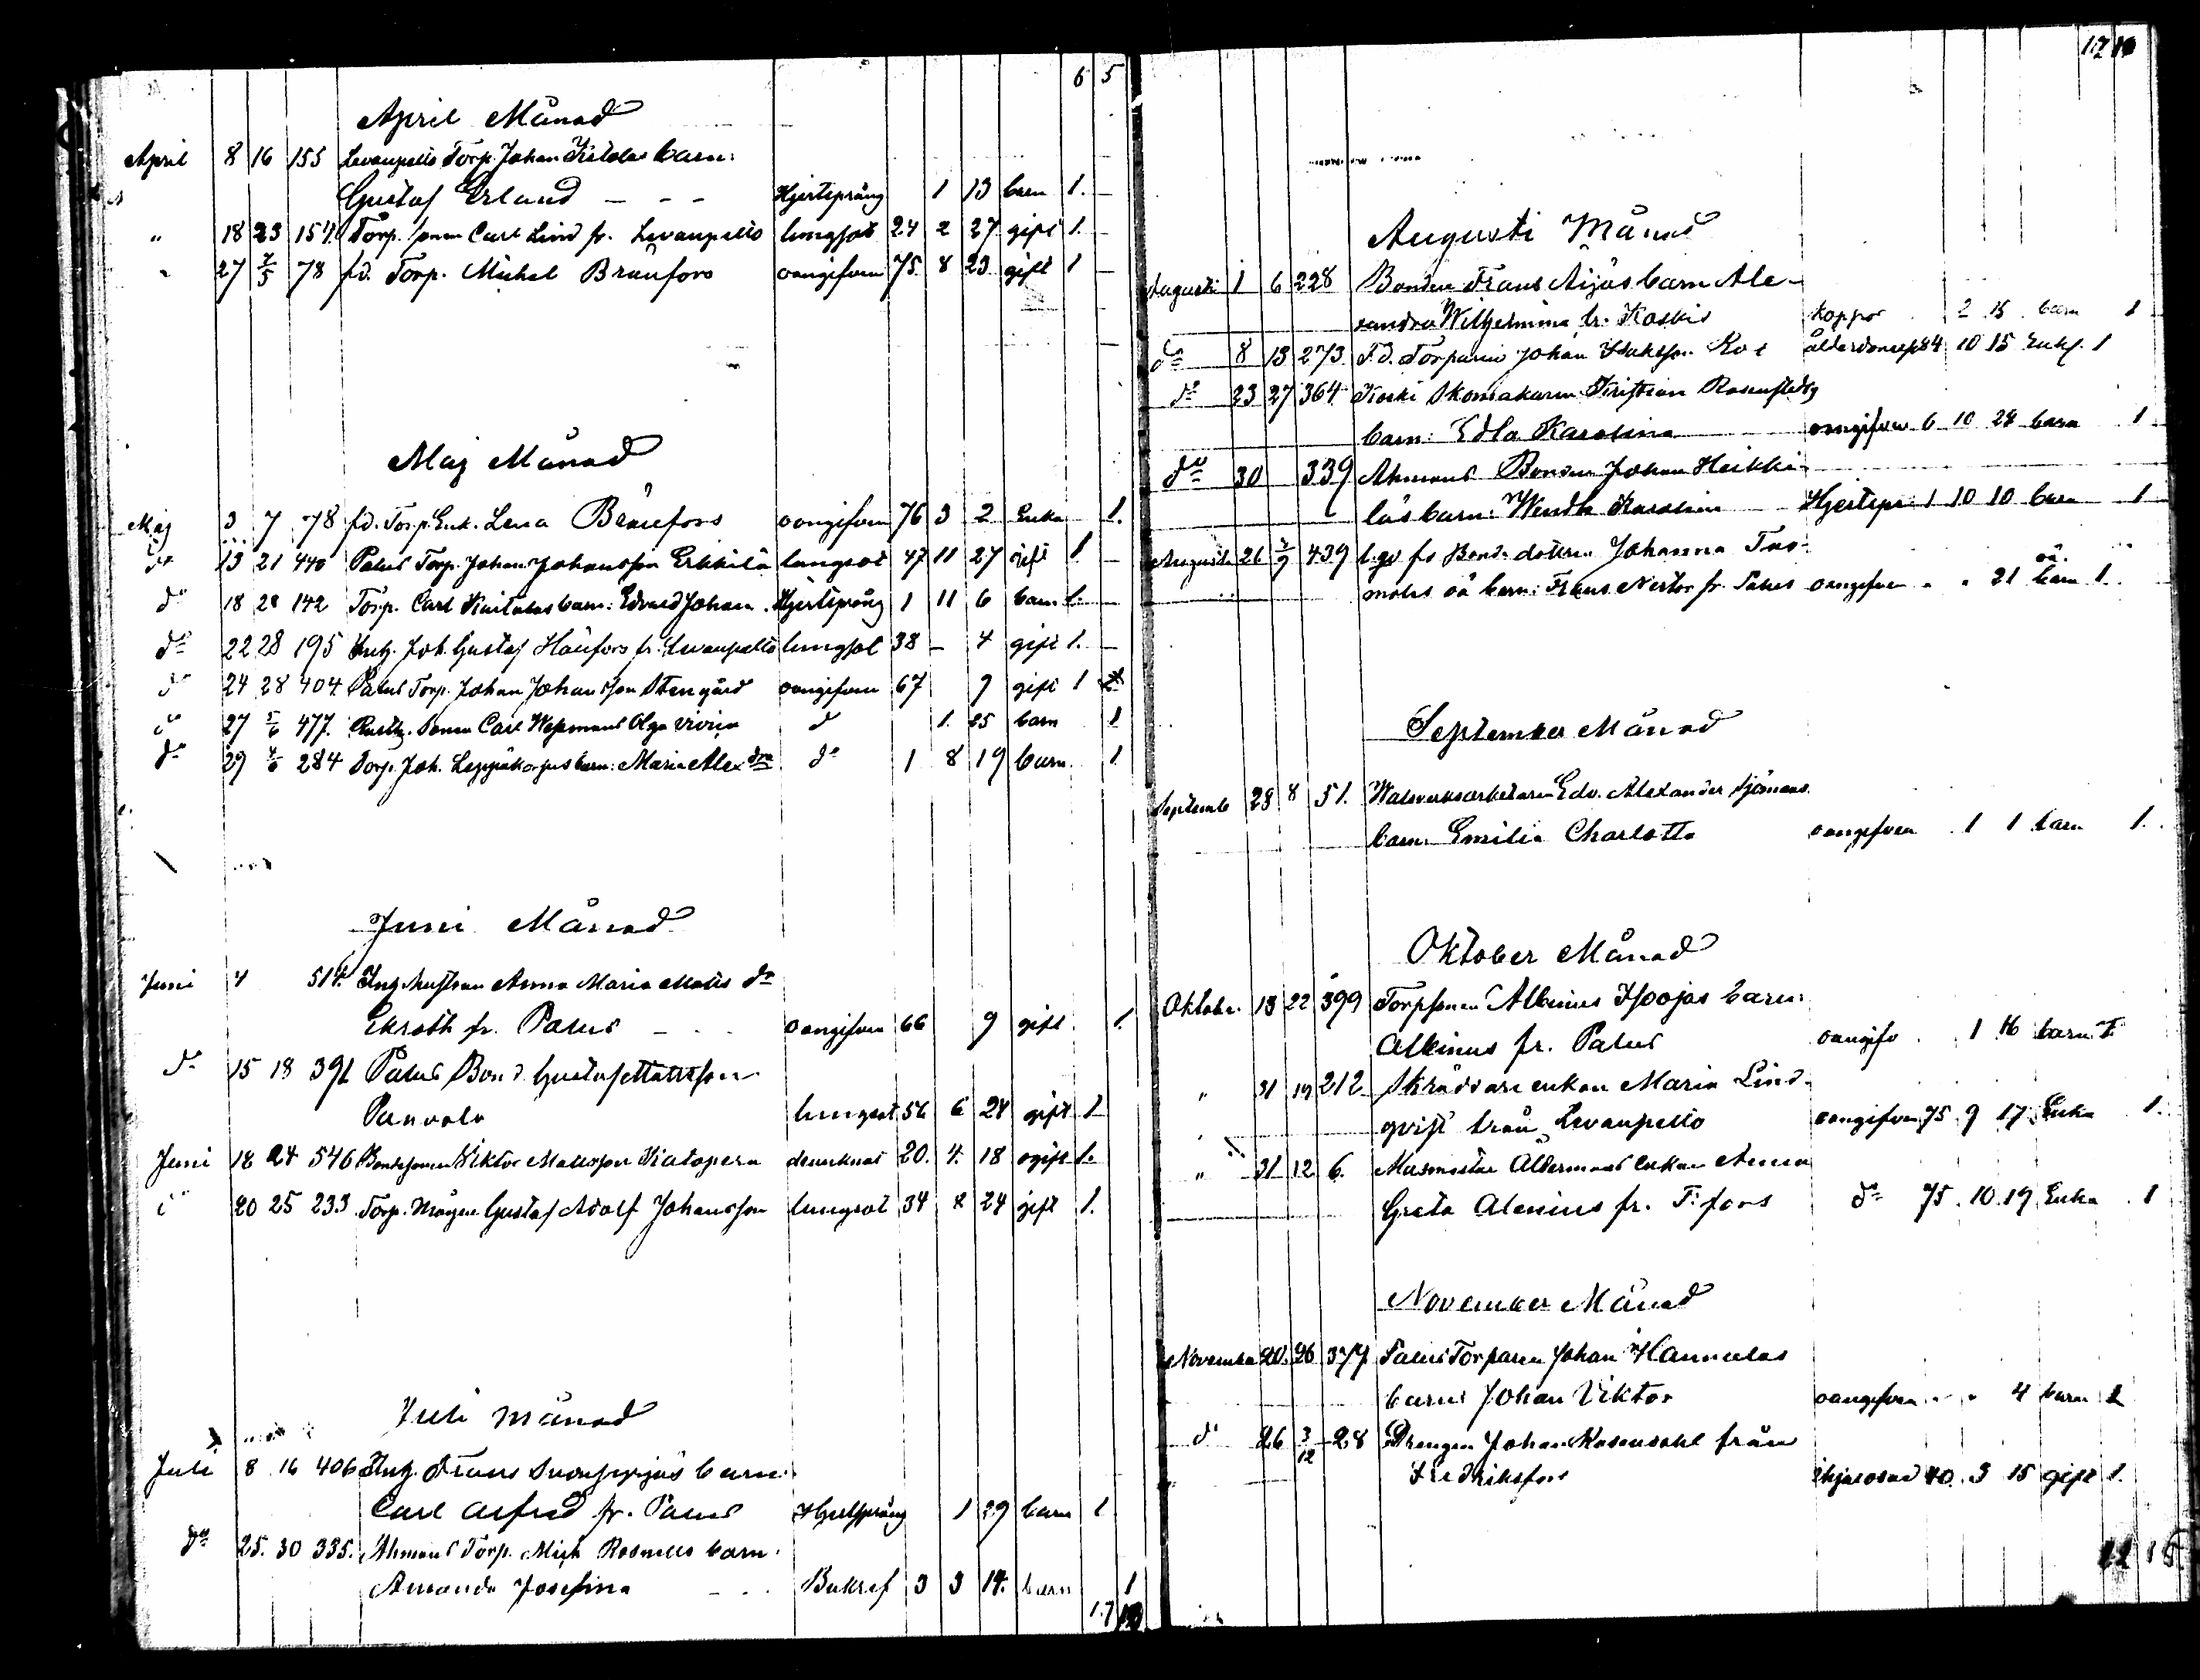 6 5
April Månad
April 8 16 155 Levanpelto Torp. Johan barn:
Gustaf Erland - - - Hjertsprång 1 13 barn 1. -
" 18 23 154. Torp. sonen Carl Lind fr. Levanpelto lungsot 24 2 27 gift 1. -
" 27 7/5 78 fd. Torp. Michel Bränfors oangifven 75. 8 23 gift 1 -
Maj Månad
Maj 3 7 78 fd. Torp. Enk. Lena Brännfors oangifven 76 3 2 Enka 1.
do 13 21 440 Palus Torp. Johan Johansson Erkkilä lungsot 47 11 27 gift 1 -
do 18 28 142 Torp. Carl barn: Edvard Johan. Hjertsprång 1 11 6 barn 1. -
do 22 28 195 Inh. Joh. Gustaf Häufors fr. Levanpelto lungsot 38 - 4 gift 1. -
do 24 28 404. Palus Torp. Johan Johansson Stengård oangifven 67 9 gift 1
do 27 5/6 477. sonen Carl Olga d 1. 25 barn 1
do 29 4/6 284 Torp. Joh. Leppäkorpis barn: Maria Alexdra do 1 8 19 barn. 1.
Juni Månad
Juni 4 514. Inh. hustrun Anna Maria Matts dr
Ekroth fr. Palus - - - oangifven 66 9 gift. 1.
do 15 18 391 Palus Bond. Gustaf Mattsson
lungsot 56 6 24 gift 1
Juni 18 24 546 Bondesonen Viktor Mattsson drunknat 20. 4. 18 ogift 1.
do 20 25 233 Torp. mågen Gustaf Adolf Johansson lungsot 34 8 24 gift 1.
Juli månad
Juli 8 16 406 Inh. Frans barn:
Carl Alfred fr. Palus Hjertsprång 1 29 barn 1
do 25. 30 335. Ahmaus Torp. Mich. Rosnells barn.
Amanda Josefina - . . 3 3 14. barn 1
17
Augusti Månad
Augusti 1 6 228 Bonden Frans Äijäs barn Ale-
xandra Wilhelmina fr. Koskis koppor 2 15 barn 1
do 8 13 273. F.d. Torparen Johan Isaksson ålderdomssv 84 10 15 Enkl. 1
do 23 27 364. Koski Skomakaren Kristian Rosenstedts
barn: Edla Karolina oangifven 6 10 24 barn 1
do 30 339 Ahmaus Bonden Johan Heikki-
läs barn: Wendla Karolina Hjertspr. 1 10 10 barn 1
Augusti 26 2/9 439 Bonde dottren Johanna Tuo-
molas oä barn: Frans Nestor fr. Palus oangifven " " 21 oä barn 1.
September Månad
Septemb 28 8 51. Walsverksarbetaren Edv. Alexander Sjömans
barn: Emilia Charlotta oangifven . 1 1 barn 1.
Oktober Månad
Oktober. 13 22 399 Torpsonen Albinus Isoojas barn:
Albinus fr. Palus oangifv . 1 16 barn 1.
" 31 19 212 Skräddare enkan Maria Lind-
qvist från Levanpelto oangifven 75. 9 17. Enka 1.
" 31 12 6. Masmästar Åldermans enkan Anna
Greta Alenius fr. F:fors do 75. 10. 19 Enka 1
November Månad
November 20. 26 377 Palus Torparen Johan Hannulas
barn: Johan Viktor oangifven " " 4 barn 1
do 26 3/12 28 Drengen Johan Rosendahl från
Fredriksfors ihjelrosad 40. 3 15 gift 1.